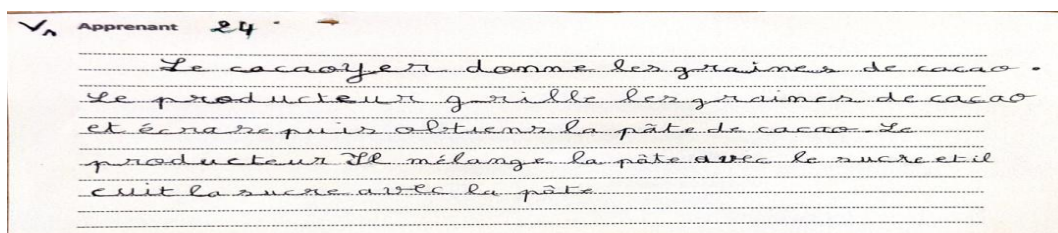 V1 Apprenant 24
Le cacaoyer donne les graines de cacao.
Le producteur grille les graines de cacao
et écrase puis obtiens la pâte de cacao. Le
producteur Il mélange la pâte avec le sucre et il
cuit la sucre avec la pâte